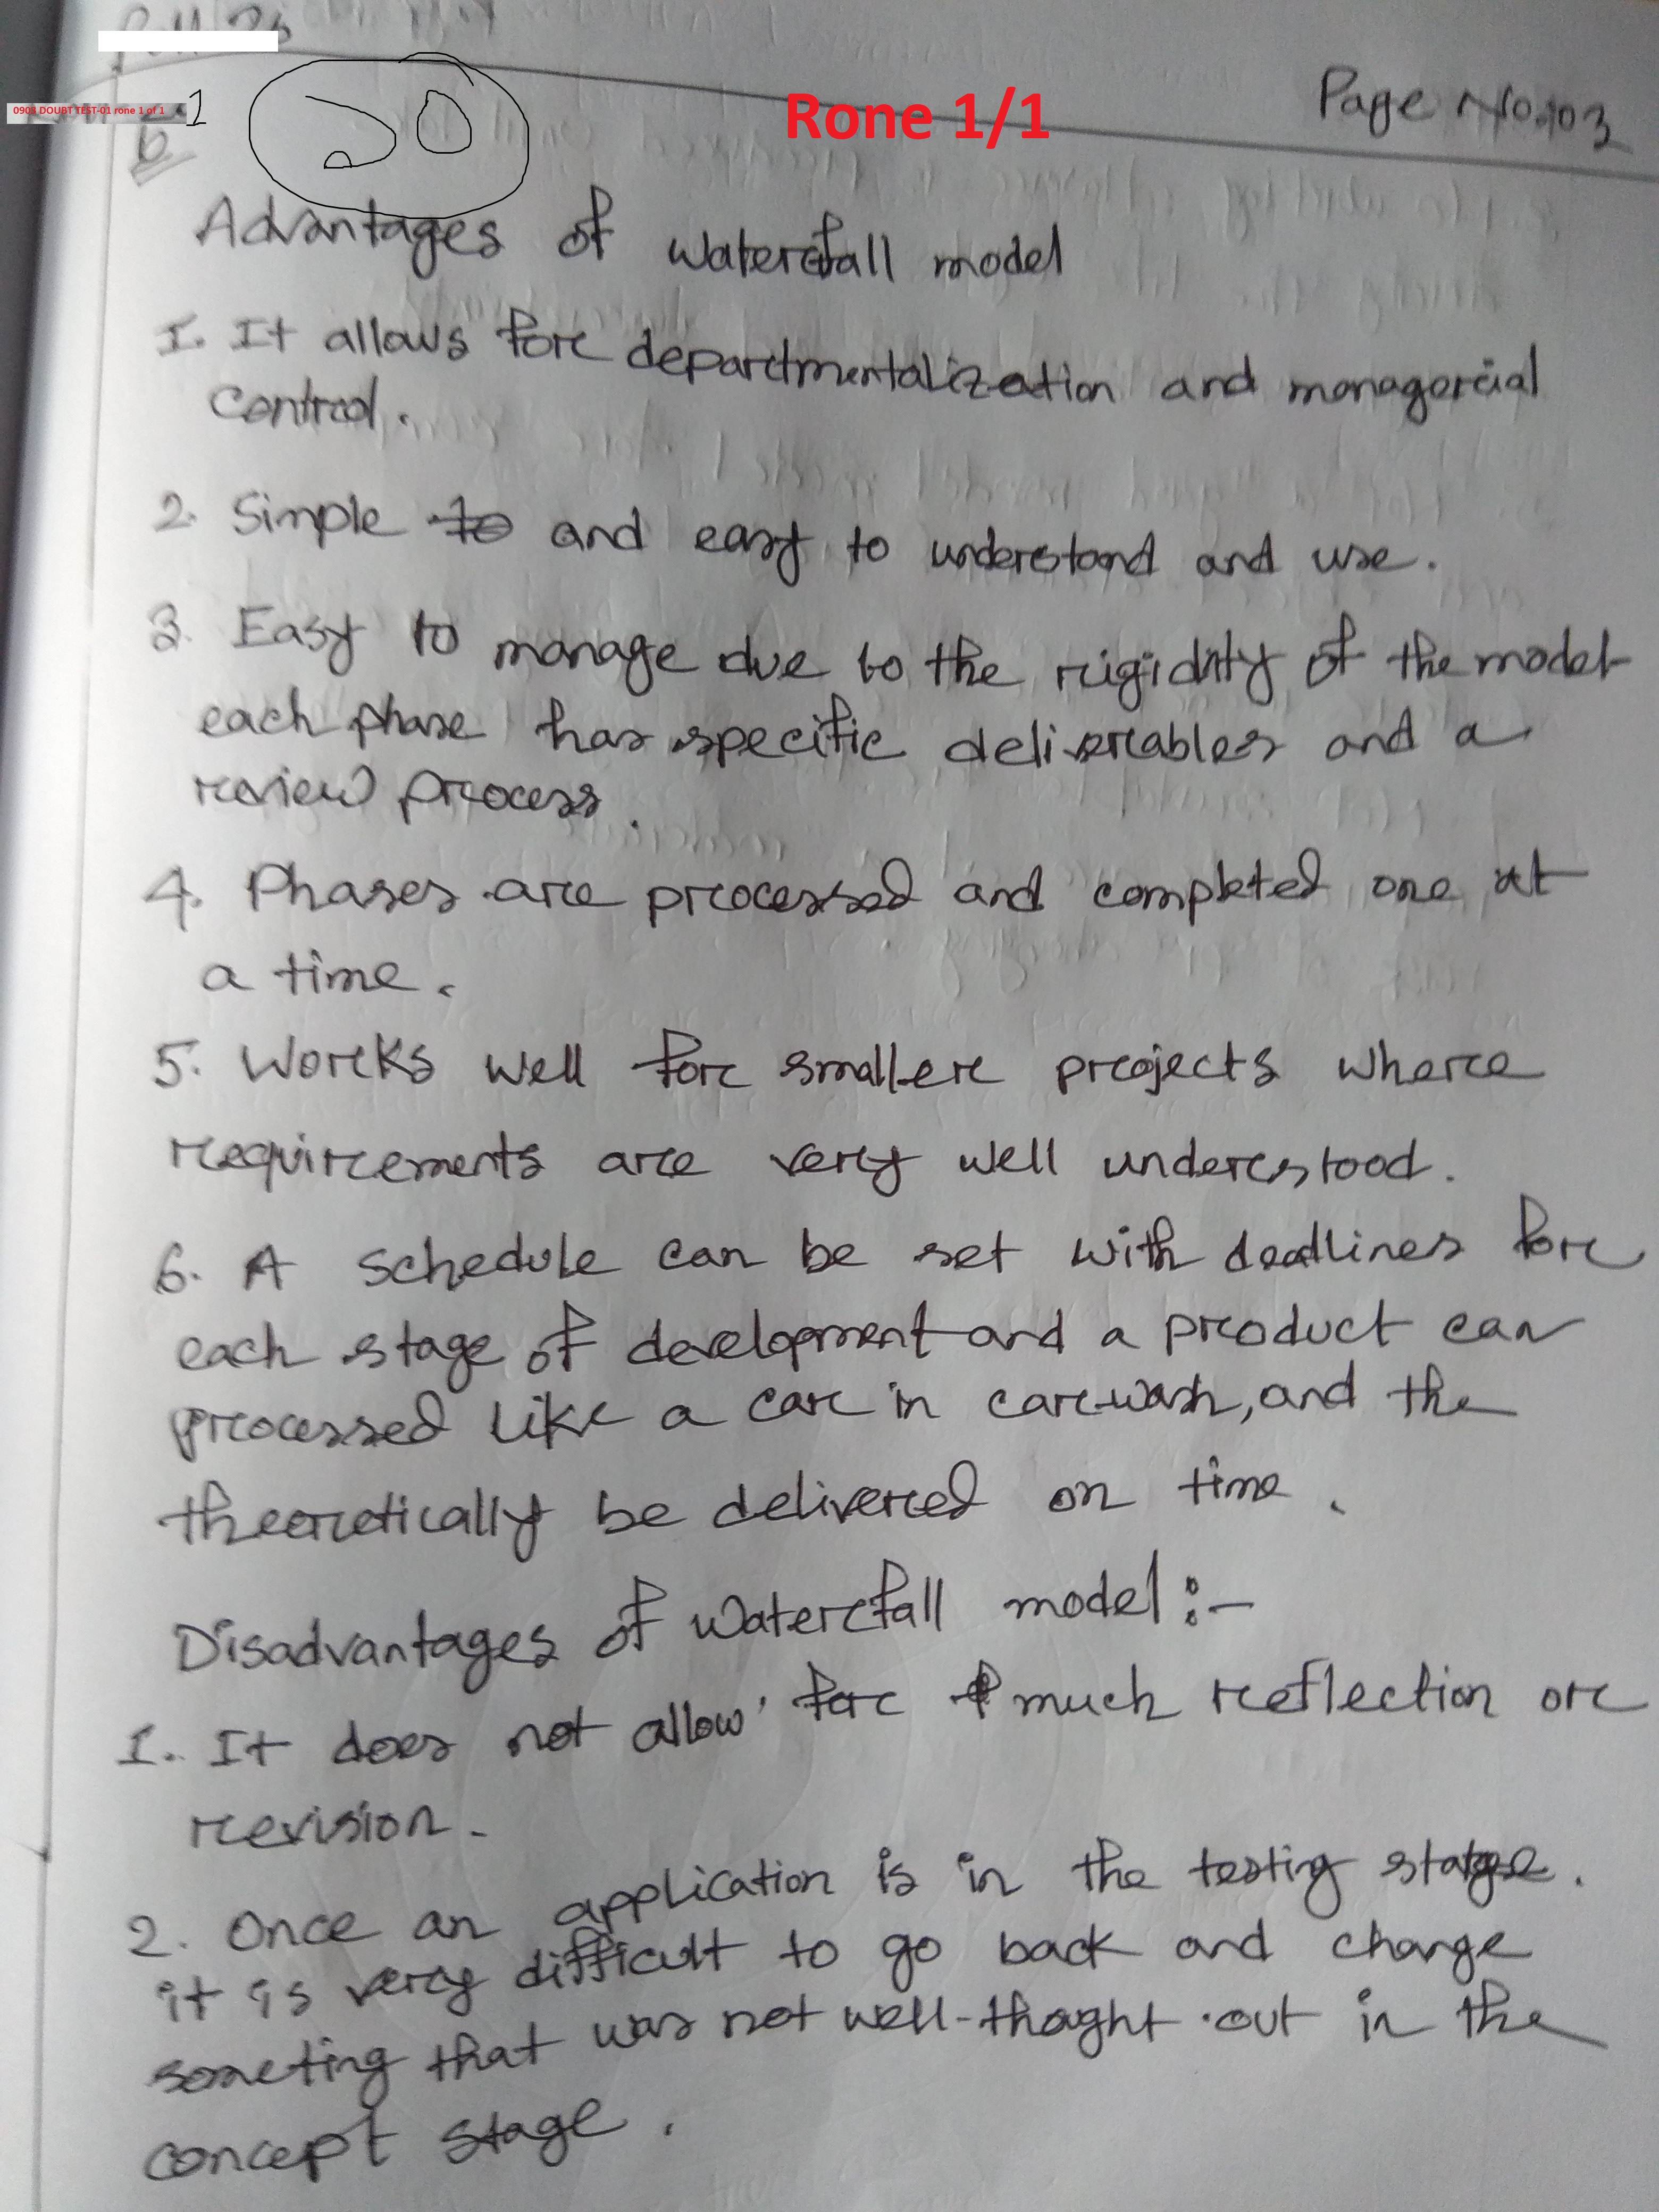 Rone 1/1
Page No.103
0904 DOUBT TEST-01 rone 1 of 1
1
6
Advantages of Waterfall model
1. It allows for departmentalization and managerial
control.
2. Simple to and easy to understand and use.
3. Easy to manage due to the rigidity of the model
each phase has specific deliverables and a
review process.
4. Phases are processed and completed one at
a time.
5. Works well for smaller projects where
requirements are very well understood.
6. A schedule can be set with deadlines for
each stage of development and a product can
processed like a car in car-wash, and the
theoretically be delivered on time.
Disadvantages of Waterfall model :-
1. It does not allow for much reflection or
revision.
2. Once an application is in the testing stage.
it is very difficult to go back and change
someting that was not well-thoght out in the
concept stage.